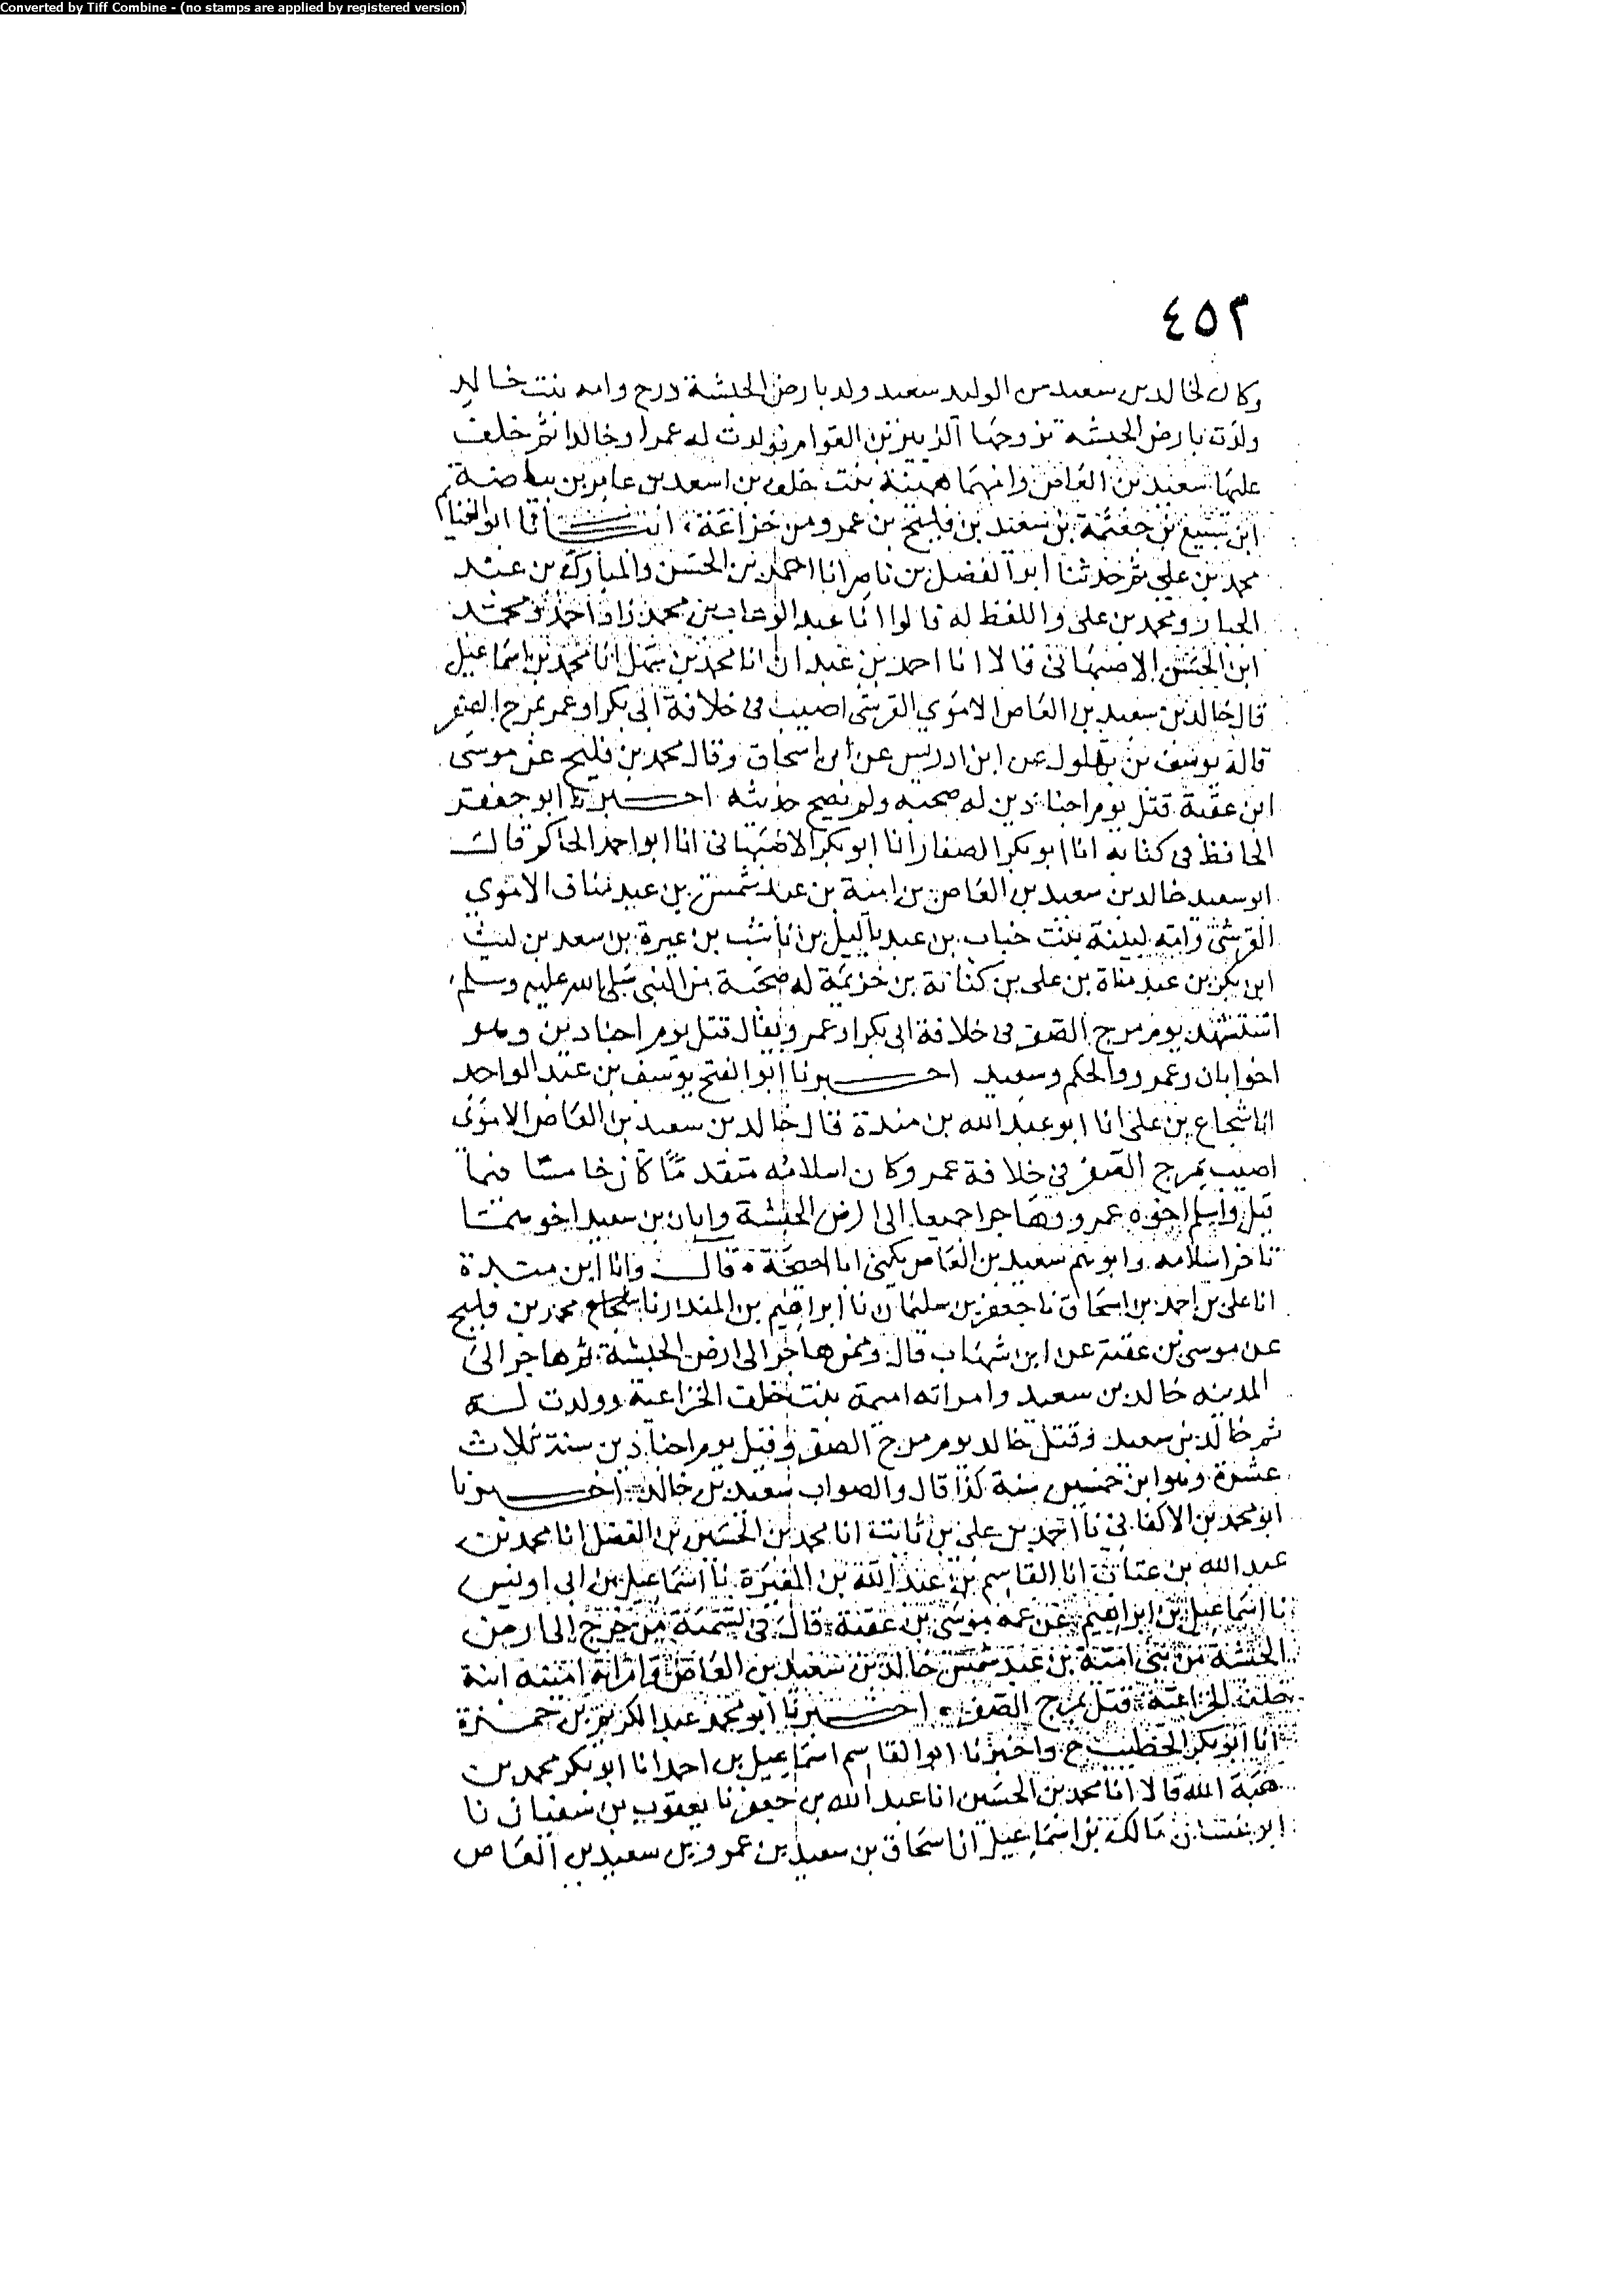 Converted by Tiff Combine - (no stamps are applied by registered version)
٤٥٣
وكان لخالد بن سعيد من الوليد سعيد ولد بارض الحبشة درج وامه بنت خالد
ولدت بارض الحبشة تزوجها الزبير بن العوام فولدت له عمرا وخالدا ثم خلف
عليها سعيد بن العاص وامهما همينة بنت خلف بن اسعد بن عامر بن بياضة
ابن سبيع بن جعثمة بن سعد بن فليح بن عمرو من خزاعة انبانا ابو الغنائم
محمد بن علي ثم حدثنا ابو الفضل بن ناصر انا احمد بن الحسن والمبارك بن عبد
الجبار ومحمد بن علي واللفظ له قالوا انا عبد الوهاب بن محمد زاد احمد ومحمد
ابن الحسن الاصبهاني قالا انا احمد بن عبدان انا محمد بن سهل انا محمد بن اسماعيل
قال خالد بن سعيد بن العاص الاموي القرشي اصيب في خلافة ابي بكر او عمر بمرج الصفر
قاله يوسف بن بهلول عن ابن ادريس عن ابن اسحاق وقال محمد بن فليح عن موسى
ابن عقبة قتل يوم اجنادين له صحبة ولم يصح حديثه اخبرنا ابو جعفر
الحافظ في كتابه انا ابو بكر الصفار انا ابو بكر الاصبهاني انا ابو احمد الحاكم قال
ابو سعيد خالد بن سعيد بن العاص بن امية بن عبد شمس بن عبد مناف الاموي
القرشي وامه لبينة بنت خباب بن عبد ياليل بن ناشب بن غيرة بن سعد بن ليث
ابن بكر بن عبد مناة بن علي بن كنانة بن خزيمة له صحبة من النبي صلى الله عليه وسلم
استشهد يوم مرج الصفر في خلافة ابي بكر او عمر ويقال قتل يوم اجنادين وهو
اخو ابان وعمرو والحكم وسعيد اخبرنا ابو الفتح يوسف بن عبد الواحد
انا شجاع بن علي انا ابو عبد الله بن مندة قال خالد بن سعيد بن العاص الاموي
اصيب بمرج الصفر في خلافة عمر وكان اسلامه متقدما كان خامسا فيما
قيل واسلم اخوه عمرو وهاجرا جميعا الى ارض الحبشة وابان بن سعيد اخوهما
تاخر اسلامه وابوهم سعيد بن العاص يكنى ابا احيحة قال وانا ابن مندة
انا علي بن احمد بن اسحاق نا جعفر بن سليمان نا ابراهيم بن المنذر نا محمد بن فليح
عن موسى بن عقبة عن ابن شهاب قال وممن هاجر الى ارض الحبشة ثم هاجر الى
المدينة خالد بن سعيد وامراته اميمة بنت خلف الخزاعية وولدت له
ثم خالد بن سعيد وقتل خالد يوم مرج الصفر وقيل يوم اجنادين سنة ثلاث
عشرة وهو ابن خمسين سنة كذا قال والصواب سعيد بن خالد اخبرنا
ابو محمد بن الاكفاني نا احمد بن علي بن ثابت انا محمد بن الحسين بن الفضل انا محمد بن
عبد الله بن عتاب انا القاسم بن عبد الله بن المغيرة نا اسماعيل بن ابي اويس
نا اسماعيل بن ابراهيم عن عمه موسى بن عقبة قال في تسمية من خرج الى ارض
الحبشة من بني امية بن عبد شمس خالد بن سعيد بن العاص وامراته امينة ابنة
خلف الخزاعية قتل بمرج الصفر اخبرنا ابو محمد عبد الكريم بن حمزة
انا ابو بكر الخطيب ح واخبرنا ابو القاسم اسماعيل بن احمد انا ابو بكر محمد بن
هبة الله قالا انا محمد بن الحسين انا عبد الله بن جعفر نا يعقوب بن سفيان نا
ابو غسان مالك بن اسماعيل انا اسحاق بن سعيد بن عمرو بن سعيد بن العاص